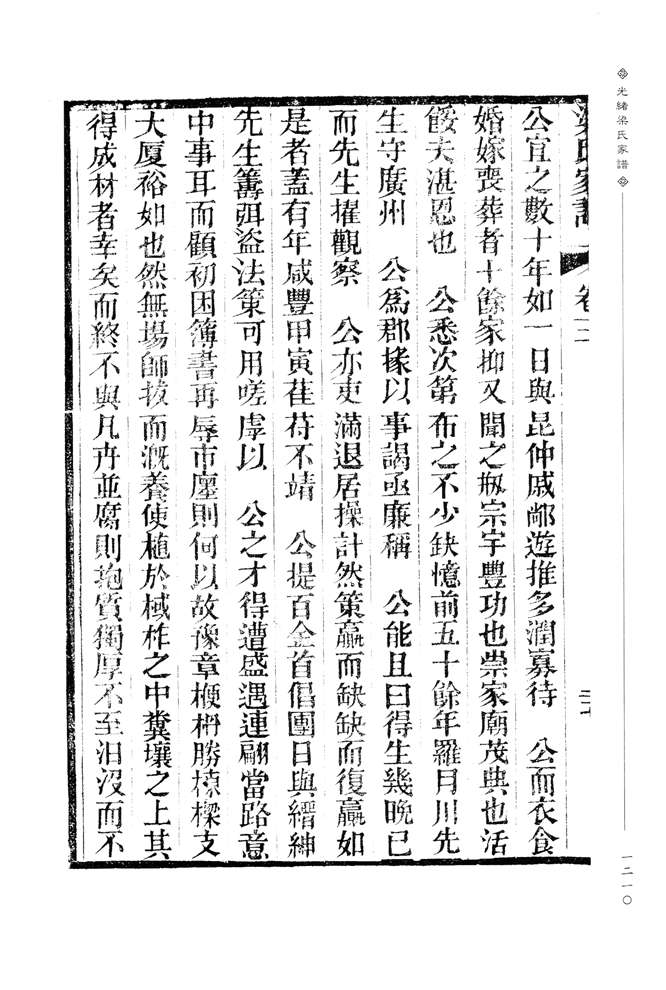 光緒梁氏家譜
一二一〇
梁氏家譜 卷三
公宜之數十年如一日與昆仲戚鄰遊推多潤寡待 公而衣食
婚嫁喪葬者十餘家抑又聞之瓶宗宇豐功也崇家廟茂典也活
餒夫湛恩也 公悉次第布之不少缺憶前五十餘年羅月川先
生守廣州 公爲郡掾以事謁亟廉稱 公能且曰得生幾晚已
而先生擢觀察 公亦吏滿退居操計然策贏而缺缺而復贏如
是者蓋有年咸豐甲寅萑苻不靖 公提百金首倡團日與縉紳
先生籌弭盜法策可用嗟虖以 公之才得遭盛遇連翩當路意
中事耳而顧初困簿書再辱市廛則何以故豫章楩柟勝椋樑支
大厦裕如也然無場師拔而溉養使植於棫柞之中糞壤之上其
得成材者幸矣而終不與凡卉並腐則抱質獨厚不至汩沒而不